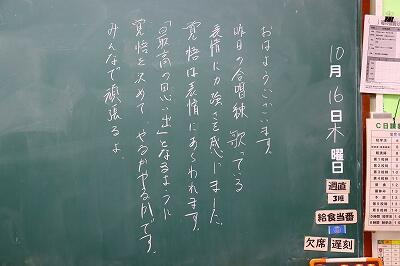 10月16日木曜日
週直
3班
給食当番
欠席
遅刻
おはようございます。
昨日の合唱練 歌っている
表情に力強さを感じました。
覚悟は表情にあらわれます。
「最高の思い出」となるように
覚悟を決めて、やるかやるかです。
みんなで頑張るよ
C日課